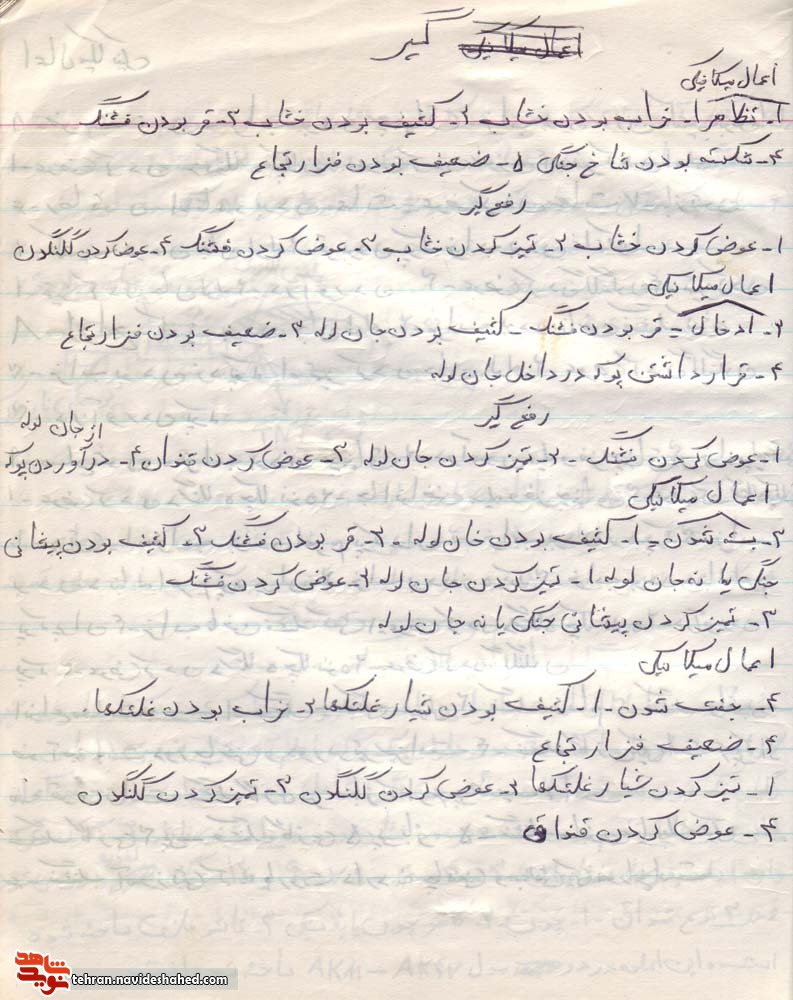 گیر اعمال مکانیکی
اعمال میکانیکی
۱- انتظار ۱- خراب بودن خشاب ۲- کثیف بودن خشاب ۳- قر بودن فشنگ
۴- شکسته بودن شاخ جنگی ۵- ضعیف بودن فنر ارتجاع
رفع گیر
۱- عوض کردن خشاب ۲- تمیز کردن خشاب ۳- عوض کردن فشنگ ۴- عوض کردن گلنگدن
اعمال میکانیکی
۲- ادخال - قر بودن فشنگ - کثیف بودن جان لوله ۳- ضعیف بودن فنر ارتجاع
۴- قرار داشتن پوکه در داخل جان لوله
رفع گیر
از جان لوله
۱- عوض کردن فشنگ - ۲- تمیز کردن جان لوله ۳- عوض کردن قنداق ۴- درآوردن پوکه
اعمال میکانیکی
۳- بسته شدن - ۱- کثیف بودن جان لوله - ۲- قر بودن فشنگ ۳- کثیف بودن پیشانی
جنگی یا ته جان لوله ۱- تمیز کردن جان لوله ۲- عوض کردن فشنگ
۳- تمیز کردن پیشانی جنگی یا ته جان لوله
اعمال میکانیکی
۴- شدن - ۱- کثیف بودن شیار غلتکها ۲- خراب بودن غلتکها.
۴- ضعیف فنر ارتجاع
۱- تمیز کردن شیار غلتکها ۲- عوض کردن گلنگدن ۳- تمیز کردن گلنگدن
۴- عوض کردن قنداق
شاهد نوید
tehran.navideshahed.com